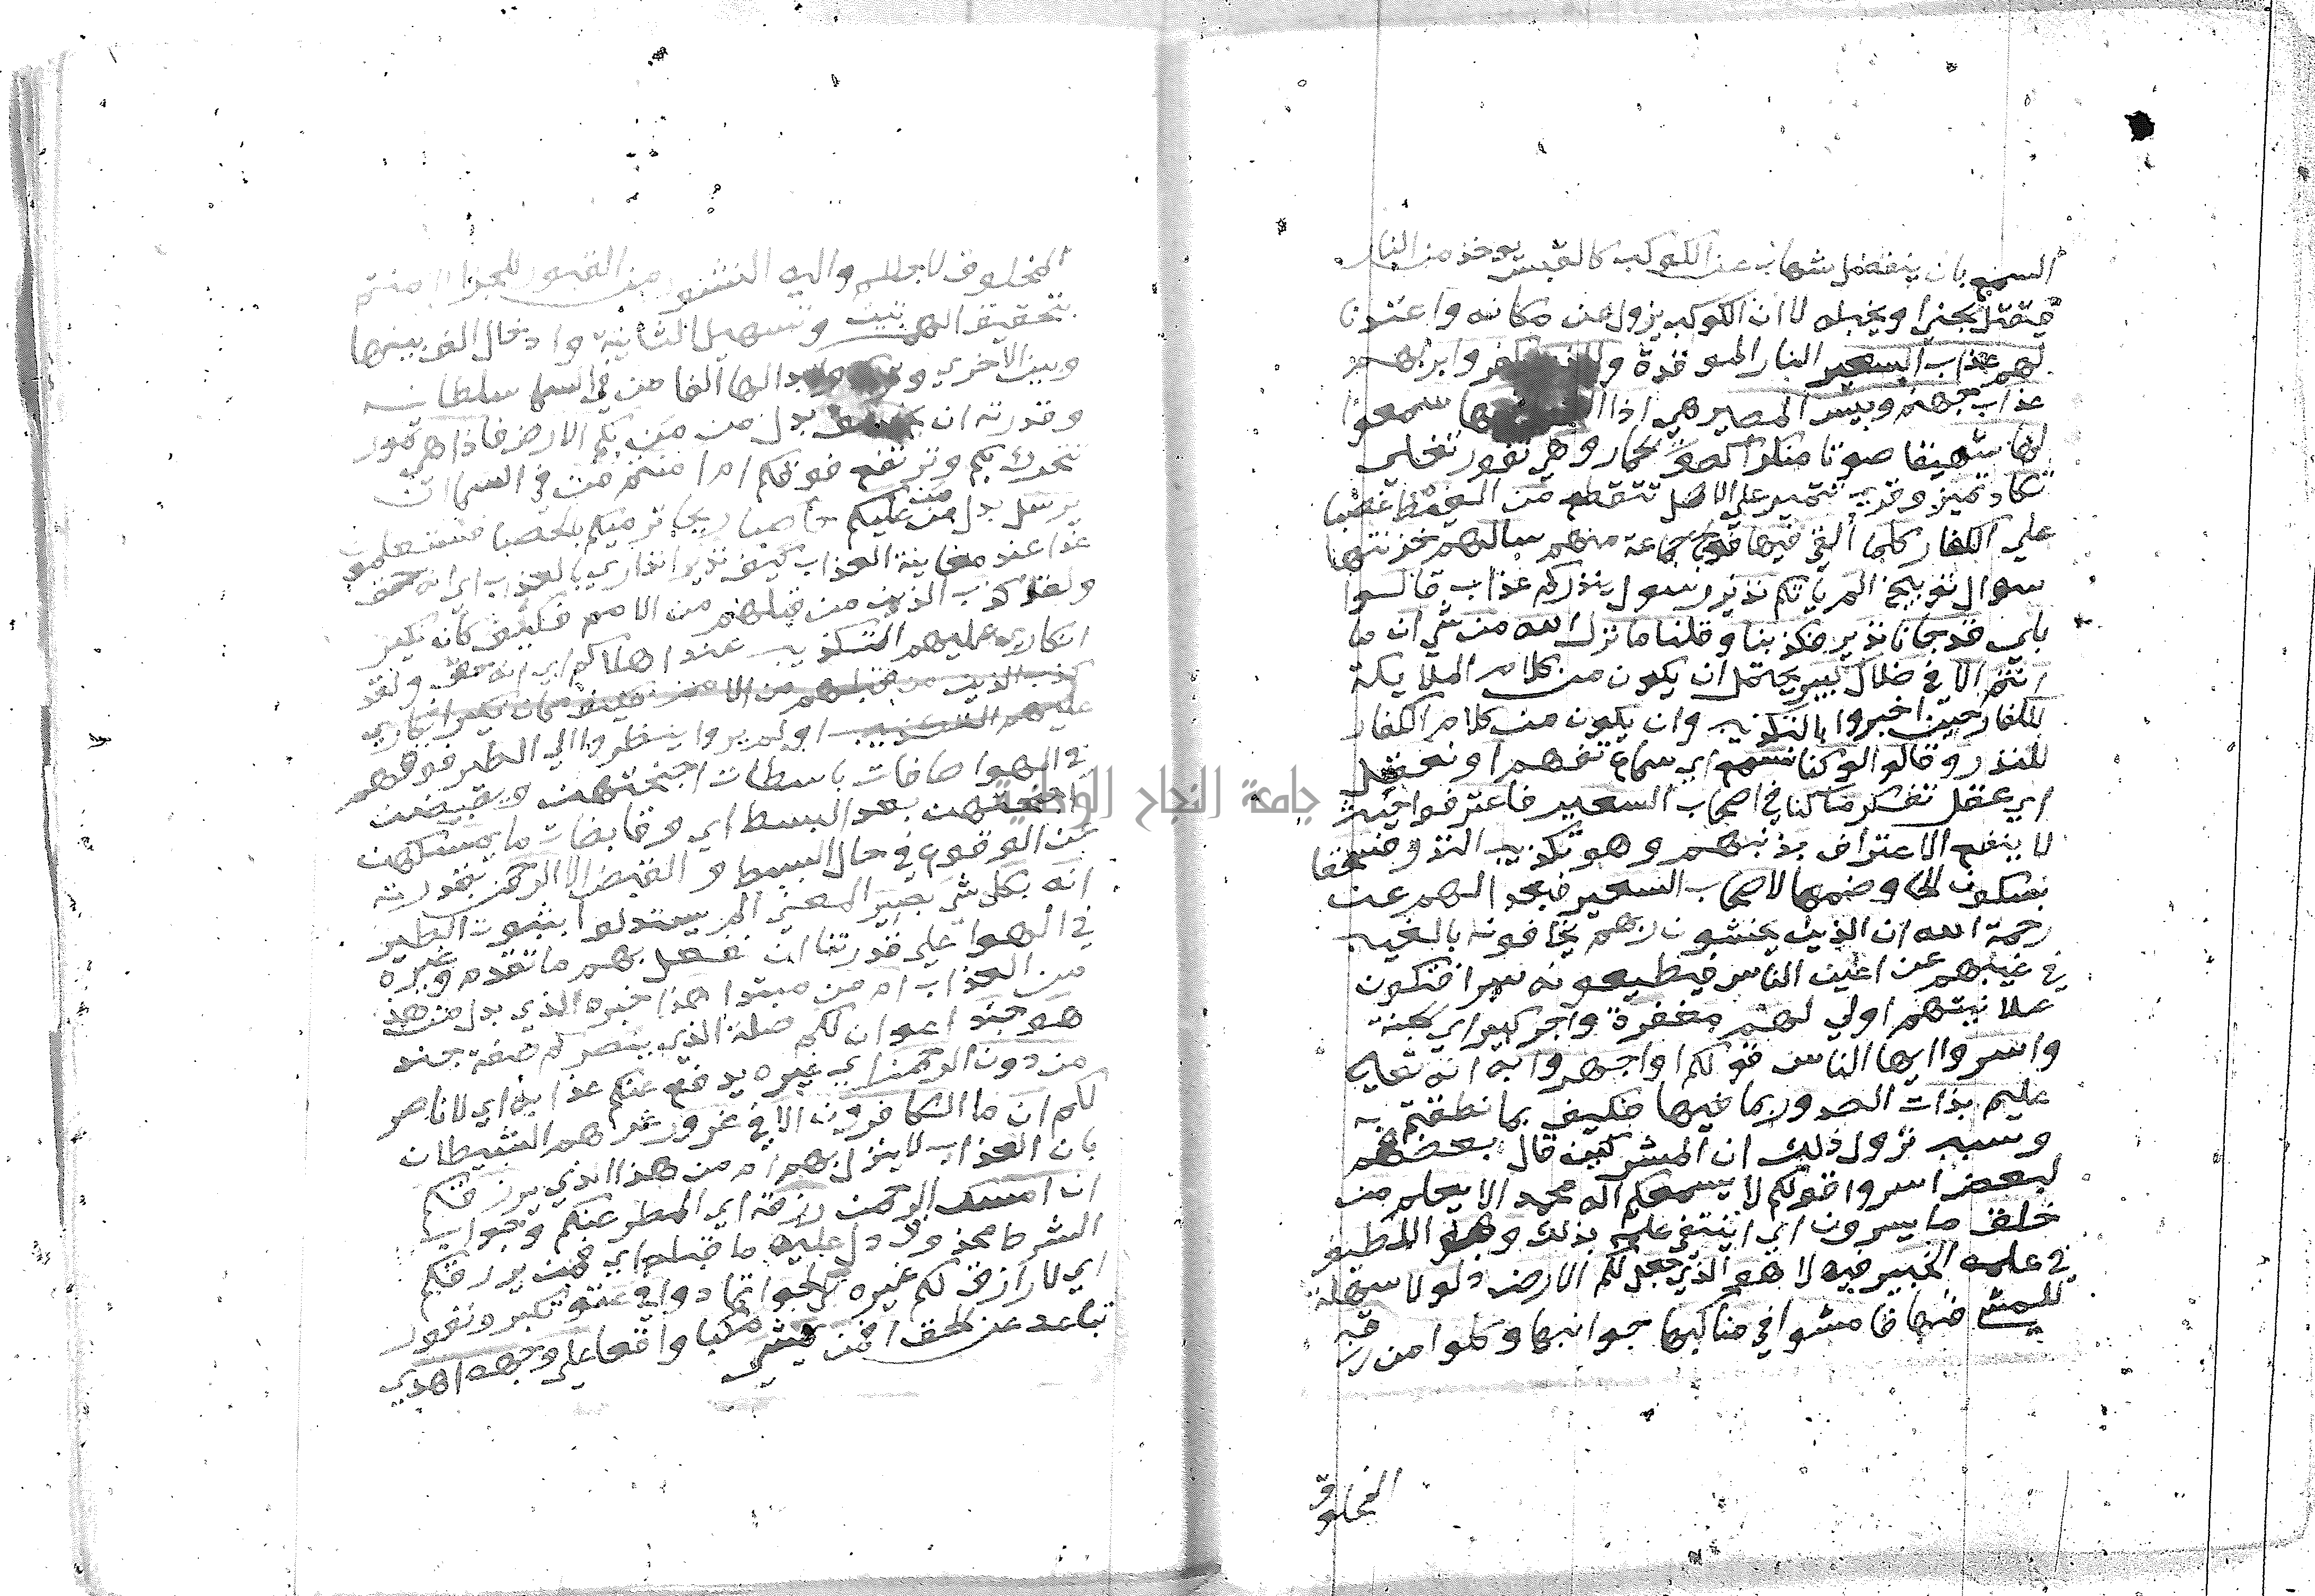 السمع بان ينفصل شهاب عن الكوكب كالقبس يوخذ من النار
فيقتل جنيا ويخبله لا ان الكوكب يزول عن مكانه واعتدنا
لهم عذاب السعير النار الموقدة وللذين كفروا بربهم
عذاب جهنم وبيس المصير هي اذا القوا فيها سمعوا
لها شهيقا صوتا منكرا كصوت الحمار وهي تفور تغلي
تكاد تميز وقري تتميز علي الاصل تتقطع من الغيظ غضبا
علي الكفار كلما القي فيها فوج جماعة منهم سالهم خزنتها
سوال توبيخ الم ياتكم نذير رسول ينذركم عذاب قالوا
بلي قد جانا نذير فكذبنا وقلنا ما نزل الله من شي ان ما
انتم الا في ضلال كبير يحتمل ان يكون من كلام الملايكة
للكفار حين اخبروا بالتكذيب وان يكون من كلام الكفار
للنذر وقالوا لو كنا نسمع اي سماع تفهم او نعقل
اي عقل تفكر ما كنا في اصحاب السعير فاعترفوا حيث
لا ينفع الاعتراف بذنبهم وهو تكذيب النذر فسحقا
بسكون الحا وضمها لاصحاب السعير فبعدا لهم عن
رحمة الله ان الذين يخشون ربهم يخافونه بالغيب
في غيبهم عن اعين الناس فيطيعونه سرا فتكون
علانيتهم اولي لهم مغفرة واجر كبير اي الجنة
واسروا ايها الناس قولكم او اجهروا به انه تعالي
عليم بذات الصدور بما فيها فكيف بما نطقتم به
وسبب نزول ذلك ان المشركين قال بعضهم
لبعض اسروا قولكم لا يسمعكم اله محمد الا يعلم من
خلق ما يسرون اي اينتفي علمه بذلك وهو اللطيف
في علمه الخبير فيه لا هو الذي جعل لكم الارض ذلولا سهلة
للمشي فيها فامشوا في مناكبها جوانبها وكلوا من رزقه
المخلوق
المخلوق لاجلكم واليه النشور من القبور للجزا اامنتم
بتحقيق الهمزتين وتسهيل الثانية وادخال الف بينها
وبين الاخري وتركه وابدالها الفا من في السما سلطانه
وقدرته ان يخسف بدل من من بكم الارض فاذا هي تمور
تتحرك بكم وترتفع فوقكم ام امنتم من في السما ان
يرسل بدل من من عليكم حاصبا ريحا ترميكم بالحصبا فستعلمون
غدا عند معاينة العذاب كيف نذير انذاري بالعذاب اي انه حق
ولقد كذب الذين من قبلهم من الامم فكيف كان نكير
انكاري عليهم التكذيب عند اهلاكهم اي انه حق ولقد
كذب الذين من قبلهم من الامم فكيف كان نكير انكاري
عليهم التكذيب اولم يروا ينظروا الي الطير فوقهم
في الهوا صافات باسطات اجنحتهن ويقبضن
اجنحتهن بعد البسط اي وقابضات ما يمسكهن
عن الوقوع في حال البسط والقبض الا الرحمن بقدرته
انه بكل شي بصير المعني الم يستدلوا بثبوت الطير
في الهوا علي قدرتنا ان نفعل بهم ما تقدم وغيره
من العذاب ام من مبتدا هذا خبره الذي بدل من هذا
هو جند اعوان لكم صلة الذي ينصركم صفة جند
من دون الرحمن اي غيره يدفع عنكم عذابه اي لا ناصر
لكم ان ما الكافرون الا في غرور غرهم الشيطان
بان العذاب لا ينزل بهم ام من هذا الذي يرزقكم
ان امسك الرحمن رزقه اي المطر عنكم وجواب
الشرط محذوف دل عليه ما قبله اي فمن يرزقكم
اي لا رازق لكم غيره بل لجوا تمادوا في عتو تكبر ونفور
تباعد عن الحق افمن يمشي مكبا واقعا علي وجهه اهدي
جامعة النجاح الوطنية